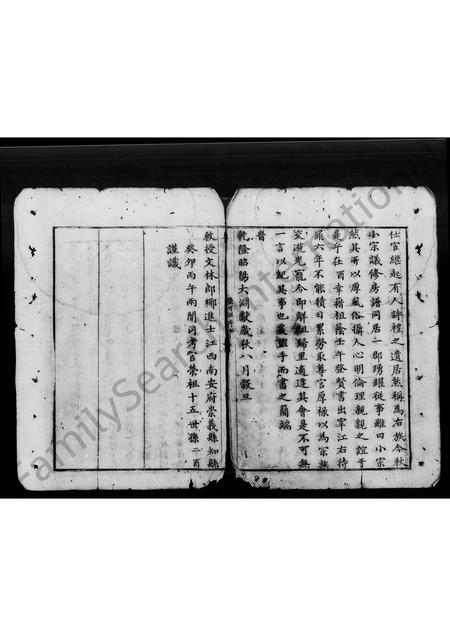 仕宦繼起有人詩禮之遺居然稱為右族今秋
小宗議修房譜同居一郡踴躍從事雖曰小宗
然其所以厚風俗攝人心明倫理親親之誼于
是乎在酉幸藉祖蔭壬午登賢書出宰江右待
罪六年不能積日累勞取尊官厚祿以為宗族
交遊光寵今即解組歸里適逢其會是不可無
一言以紀其事也盥手而書之簡端
旹
乾隆昭陽大淵獻歲秋八月穀旦
敕授文林郎鄉進士江西南安府崇義縣知縣
癸卯丙午兩闈同考官榮祖十五世孫二酉
謹識
FamilySearch International